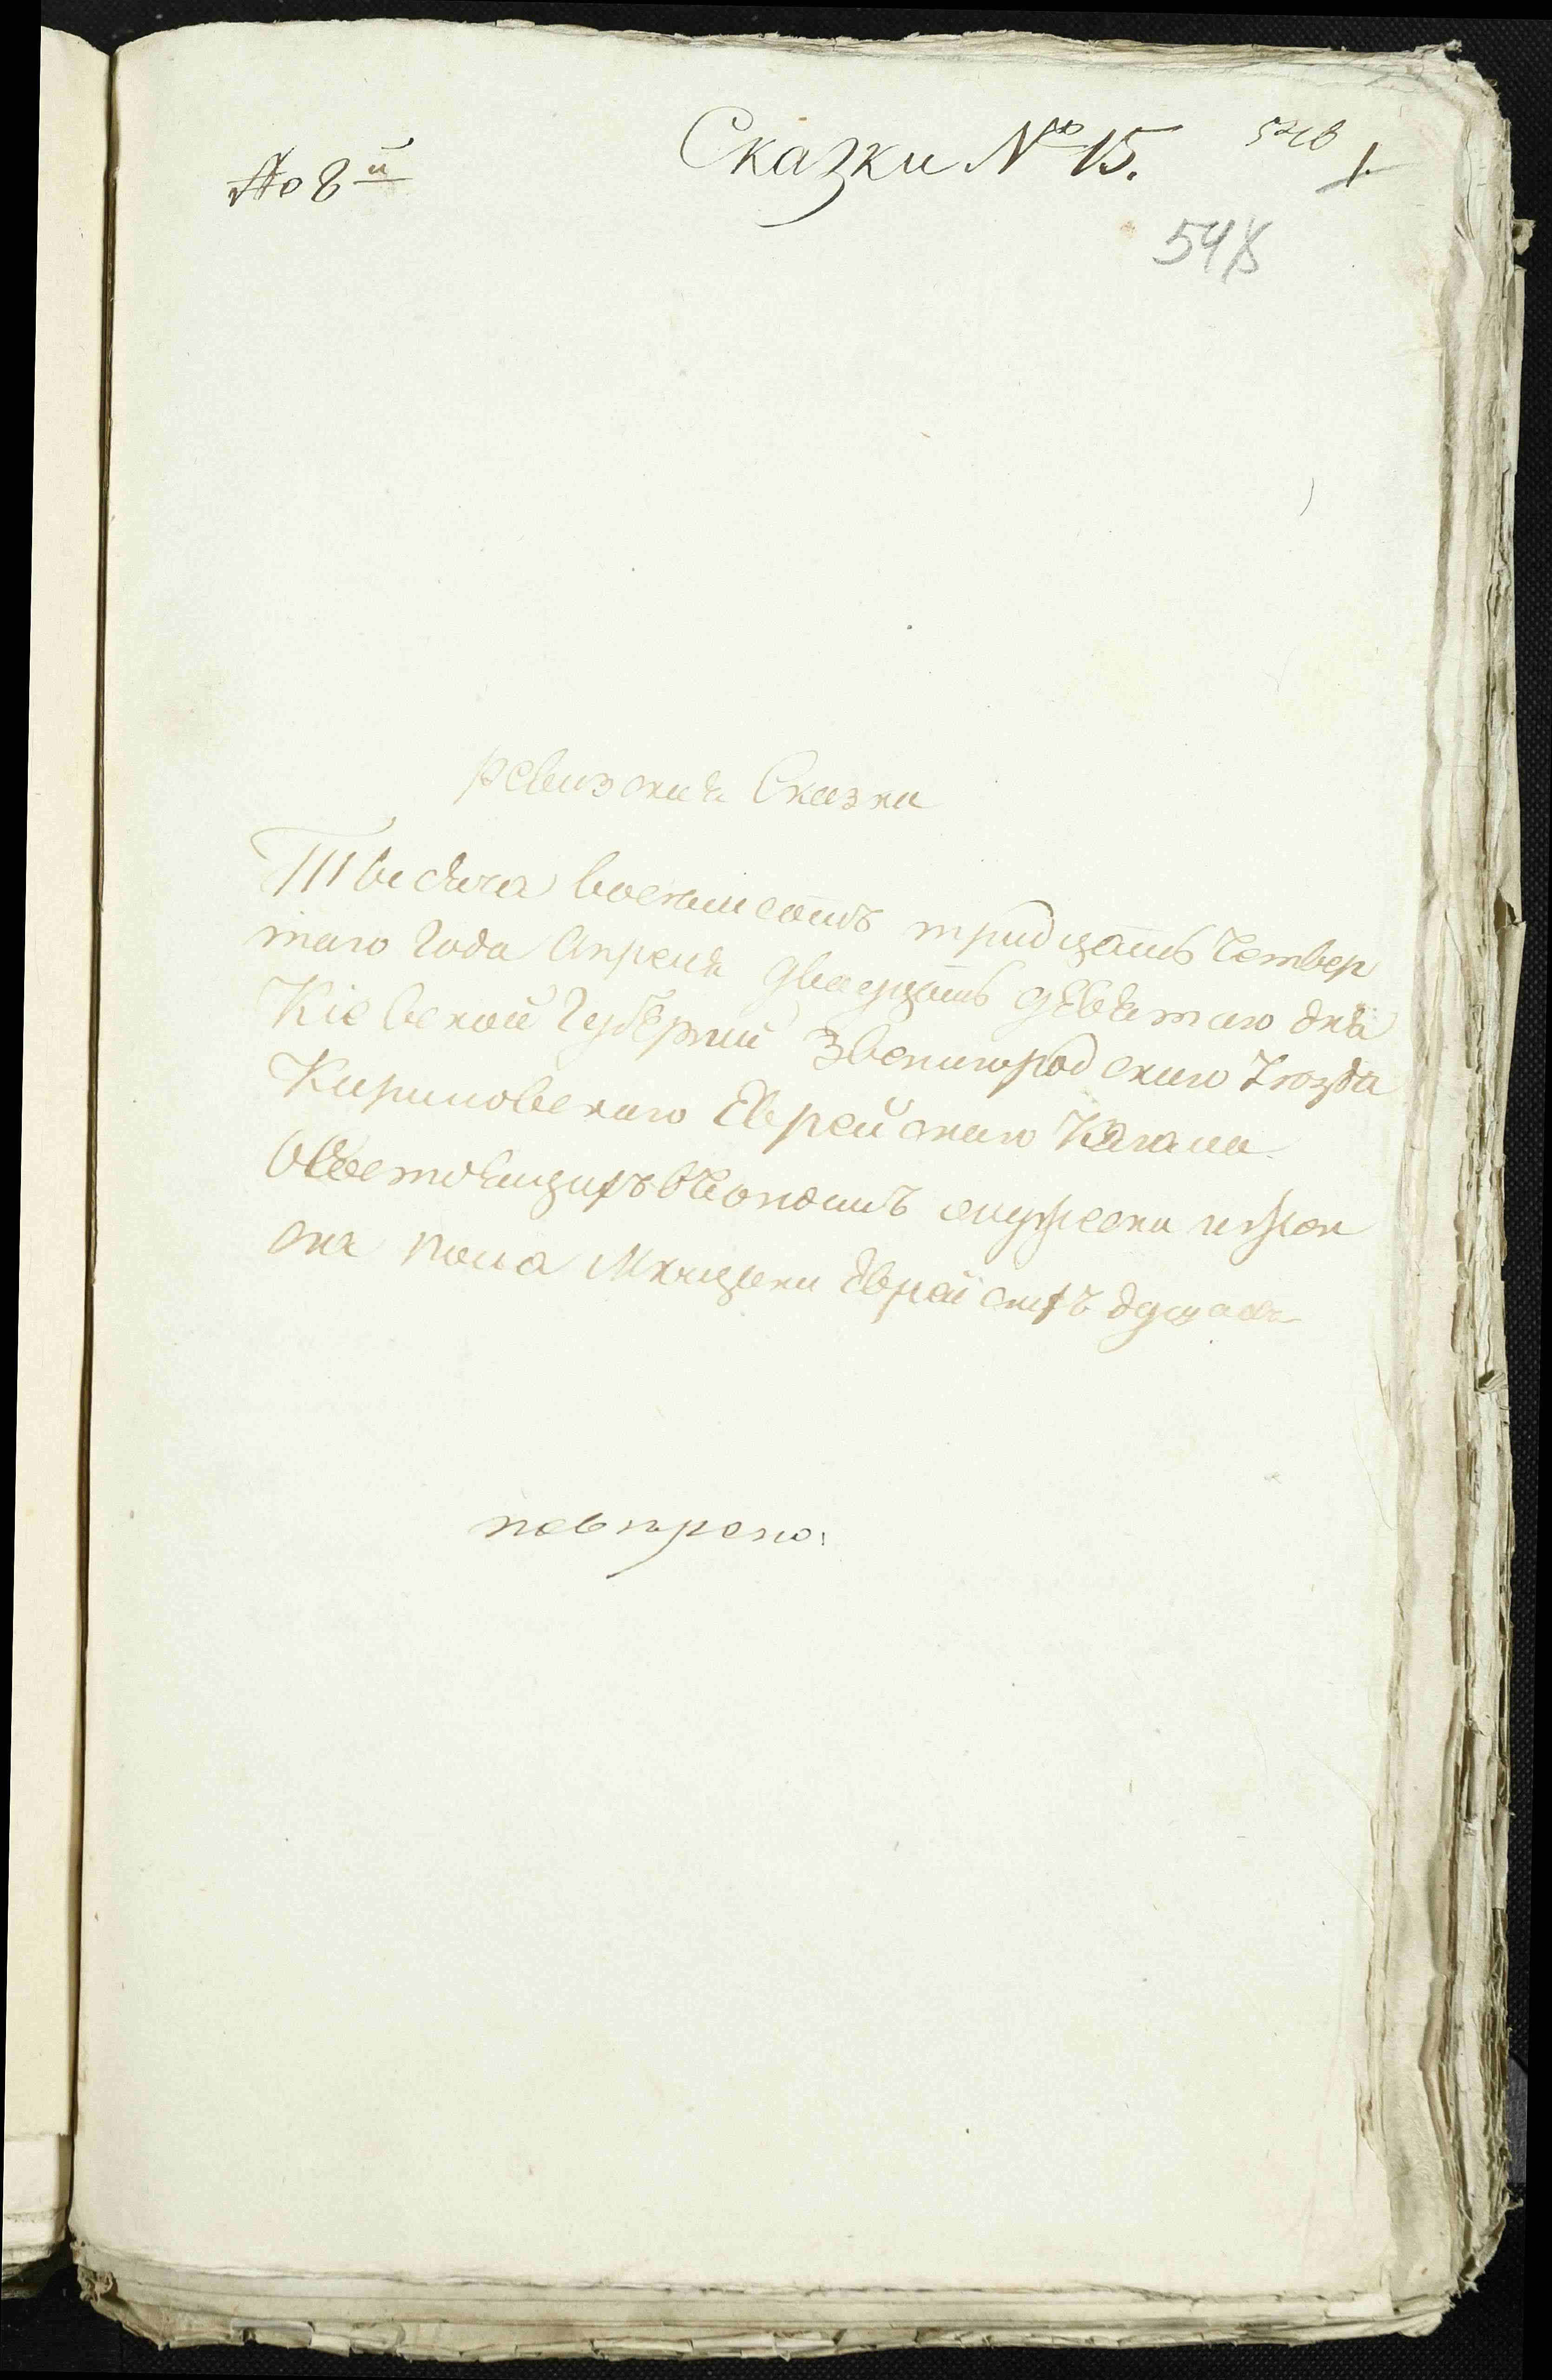 По 8й
Сказки № 15.
1.
548
ревизския Сказки
Тысяча восемъсотъ тридцать Четвер
таго Года Апреля двадцать девятаго дня
Кіевской Губерніи Звенигородскаго Уезда
Кириловскаго Еврейскаго Кагала
О Состоящихъ мужеска и жен
ска пола Мещански Еврейскихъ душахъ